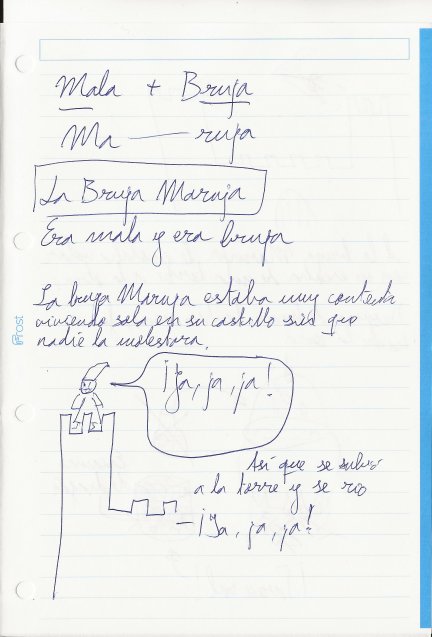 Mala + Bruja
Ma — ruja
La Bruja Maruja
Era mala y era bruja
La bruja Maruja estaba muy contenta
viviendo sola en su castillo sin que
nadie la molestara.
¡Ja, ja, ja!
Así que se subió
a la torre y se rio
—¡Ja, ja, ja!
Frost